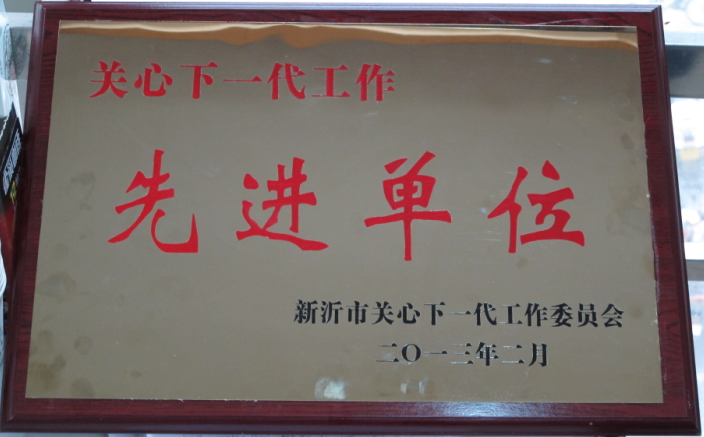 关心下一代工作
先进单位
新沂市关心下一代工作委员会
二〇一三年二月